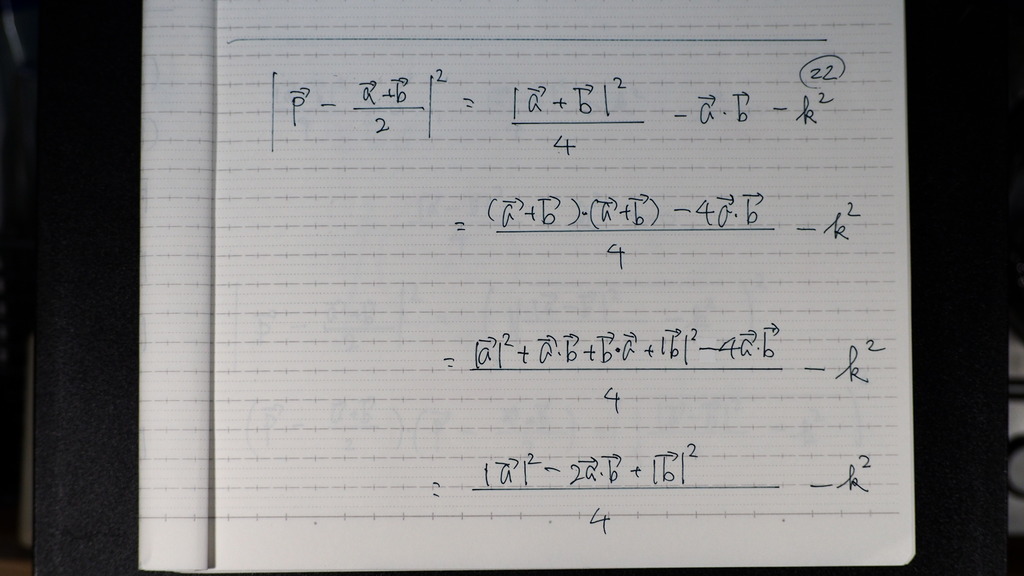 ㉒
|p⃗ − (a⃗+b⃗)/2|² = |a⃗ + b⃗|²/4 − a⃗·b⃗ − k²
= ((a⃗+b⃗)·(a⃗+b⃗) − 4a⃗·b⃗)/4 − k²
= (|a⃗|² + a⃗·b⃗ + b⃗·a⃗ + |b⃗|² − 4a⃗·b⃗)/4 − k²
= (|a⃗|² − 2a⃗·b⃗ + |b⃗|²)/4 − k²